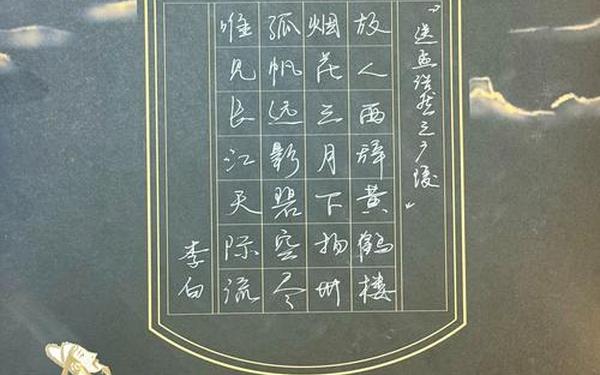 《送孟浩然之广陵》
故人西辞黄鹤楼
烟花三月下扬州
孤帆远影碧空尽
唯见长江天际流
李白